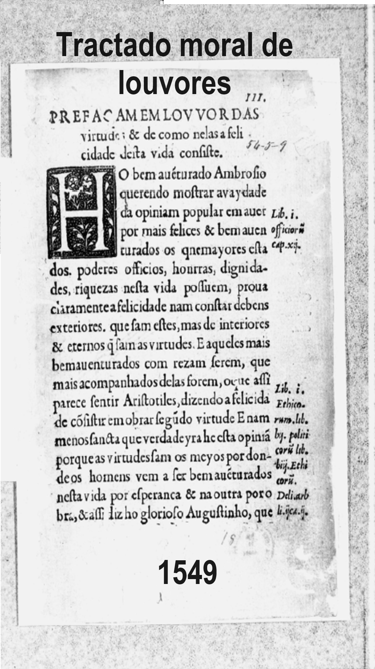 Tractado moral de
louvores
III.
PREFAÇAM EM LOVVOR DAS
virtudes & de como nelas a feli
cidade desta vida consiste.
54-5-9
HO bem auẽturado Ambrosio
querendo mostrar a vaydade
da opiniam popular em auer
por mais felices & bem auen
turados os que mayores esta
dos, poderes officios, honrras, dignida-
des, riquezas nesta vida possuem, proua
claramente a felicidade nam constar de bens
exteriores. que sam estes, mas de interiores
& eternos q̃ sam as virtudes. E aqueles mais
bemauenturados com rezam serem, que
mais acompanhados delas forem, o que assi
parece sentir Aristotiles, dizendo a felicida
de cõsistir em obrar segũdo virtude E nam
menos sancta que verdadeyra he esta opiniã
porque as virtudes sam os meyos por don-
de os homens vem a ser bem auẽturados
nesta vida por esperança & na outra por o
bra, & assi diz ho glorioso Augustinho, que
Lib. i.
officiorũ
cap. xij.
Lib. i.
Ethico-
rum. lib.
vij. politi
corũ lib.
viij. Ethi
corũ.
De li. arb
1549